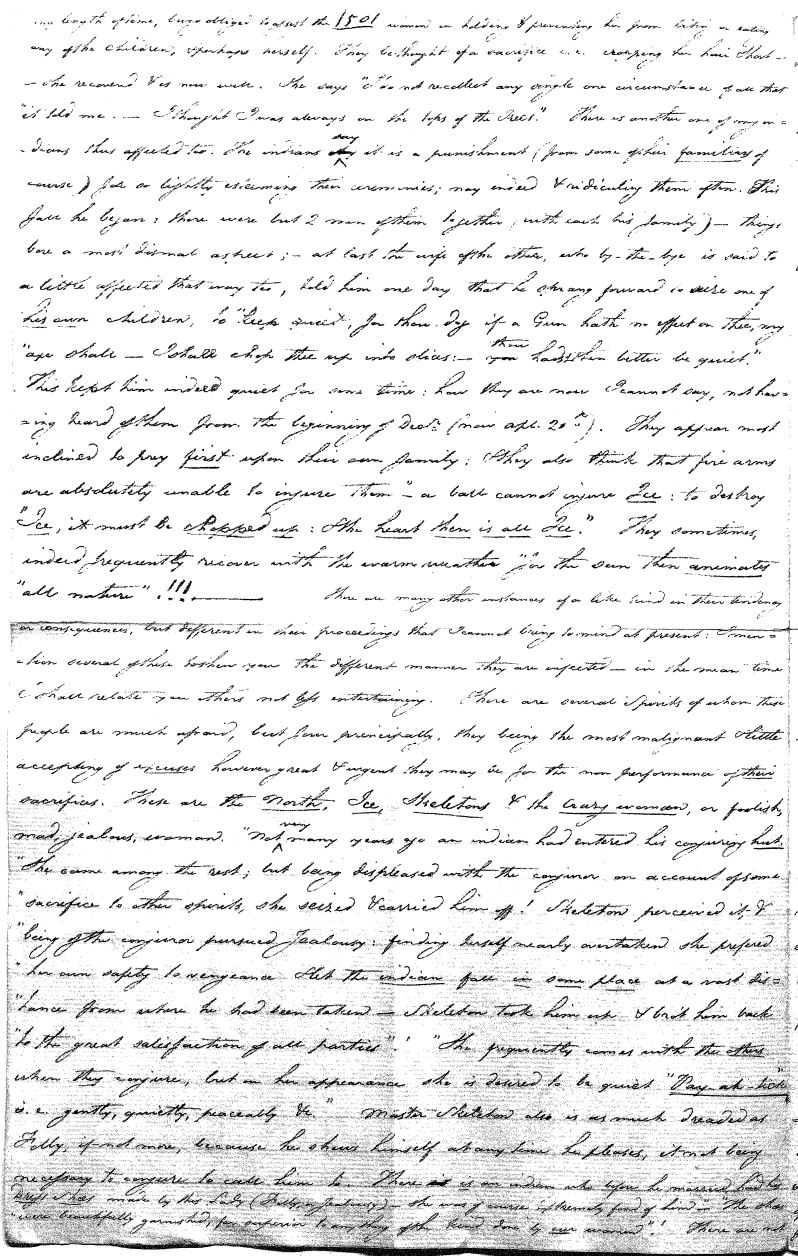 any length of time, being obliged to assist the 1501 woman in holding & preventing her from biting or eating
any of the children, & perhaps herself. They bethought of a sacrifice i.e. cropping her hair that —
— she recovered & is now well. She says "I do not recollect any single one circumstance of all that
"it told me. — I thought I was always on the tops of the Trees." There is another one of my in=
=dians thus affected too. The indians say it is a punishment (from some of their familiars of
course) for so lightly esteeming their ceremonies; nay indeed & ridiculing them often. This
fall he began: there were but 2 men of them together, (with each his family) — things
bore a most dismal aspect; — at last the wife of the other, who by-the-bye is said to
a little affected that way too, told him one day that he sprang forward to seize one of
his own children, to "keep quiet, for thou dog if a Gun hath no effect on thee, my
"axe shall — I shall chop thee up into slices: — thou hadst then better be quiet."
This kept him indeed quiet for some time: how they are now I cannot say, not hav=
=ing heard of them from the beginning of Decr. (now apl. 20th). They appear most
inclined to prey first upon their own family: they also think that fire arms
are absolutely unable to injure them " — a ball cannot injure Ice: to destroy
"Ice, it must be chopped up: & the heart then is all Ice." They sometimes,
indeed frequently recover with the warm weather "for the sun then animates
"all nature"!!! — There are many other instances of a like kind in their tendency
or consequences, but different in their proceedings that I cannot bring to mind at present: I men=
=tion several of these to shew you the different manner they are infected — in the mean time
I shall relate you others not less entertaining. There are several Spirits of whom these
people are much afraid, but four principally, they being the most malignant & little
accepting of excuses however great & urgent they may be for the non performance of their
sacrifices. These are the North, Ice, Skeletons & the Crazy woman, or foolish,
mad, jealous, woman. "Not very many years ago an indian had entered his conjuring hut.
"She came among the rest; but being displeased with the conjuror on account of some
"sacrifice to other spirits, she seized & carried him off! Skeleton perceived it &
"being of the conjuror pursued Jealousy: finding herself nearly overtaken she prefered
"her own safety to vengeance & let the indian fall in some place at a vast dis=
"tance from where he had been taken — Skeleton took him up & brot him back
"to the great satisfaction of all parties"! "She frequently comes with the others
when they conjure, but on her appearance she is desired to be quiet "Pay-ah-tick"
i.e. gently, quietly, peaceably &c." Master Skeleton also is as much dreaded as
Folly, if not more, because he shews himself at any time he pleases, it not being
necessary to conjure to call him to There is an indian who before he married had his
made by this Lady (Folly or Jealousy) — she was of course extremely fond of him — The shoes
were beautifully garnished, far superior to any thing of the kind done by our women"! There are not